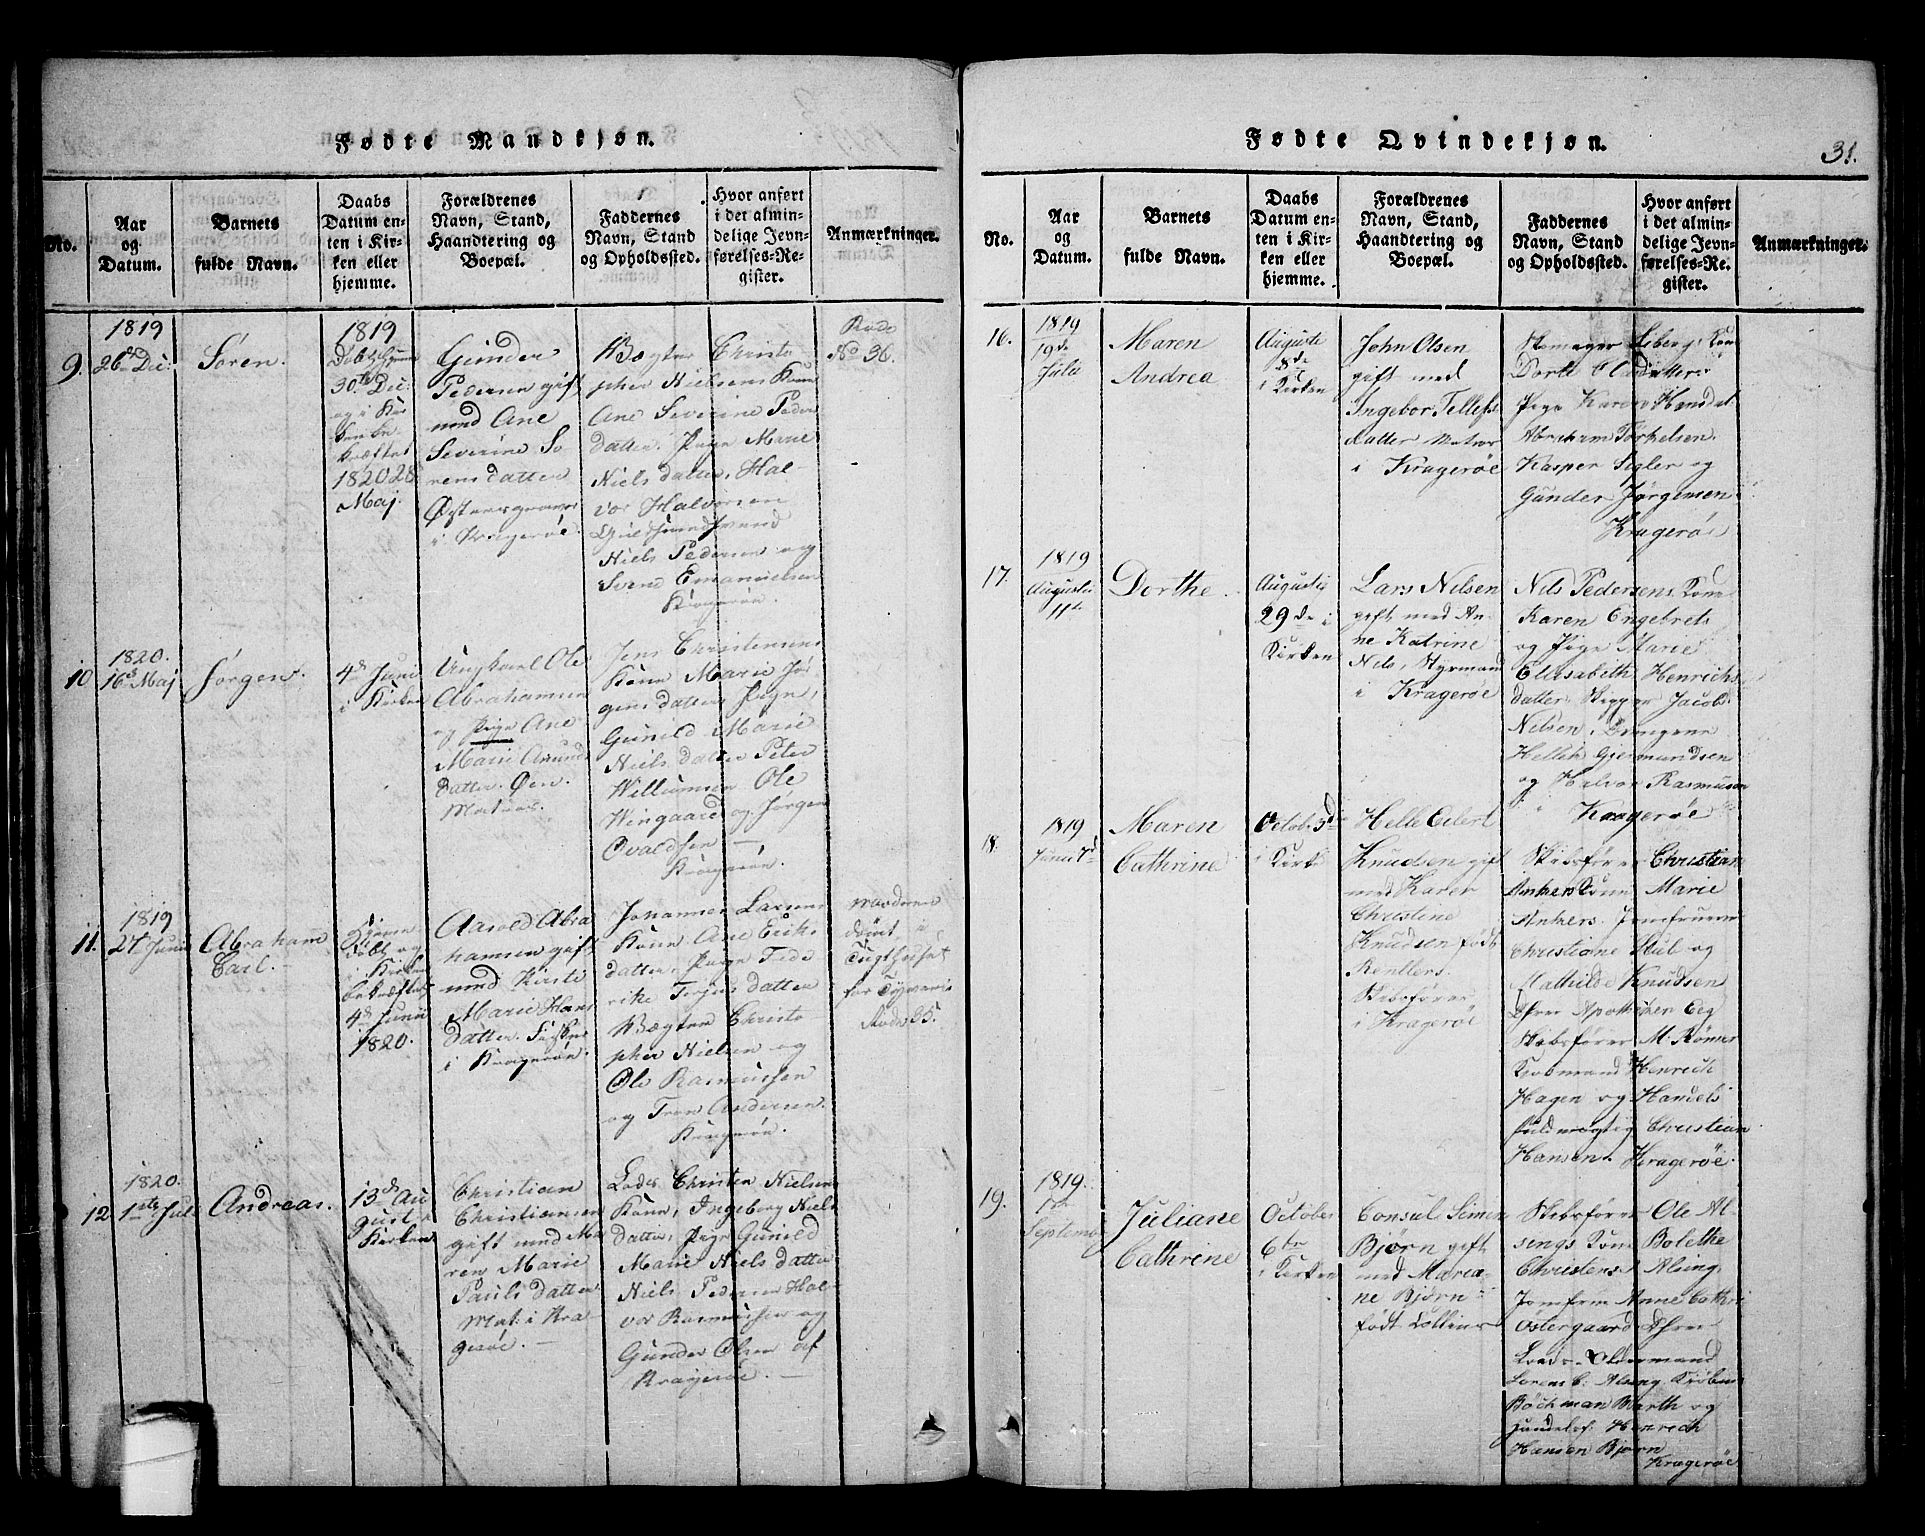 Fødte Mandkjøn.
No.
Aar
og
Datum.
Barnets
fulde Navn.
Daabs
Datum en-
ten i Kir-
ken eller
hjemme.
Forældrenes
Navn, Stand,
Haandtering og
Boepæl.
Faddernes
Navn, Stand
og Opholdssted.
Hvor anført
i det almin-
delige Jevn-
førelses-Re-
gister.
Anmærkninger.
9.
1819
26de Dec:
Søren.
1819
30te Dec:
og i Kir
ken be
kræftet
1820 28
Maj.
Gunder
Pedersen gift
med Ane
Severine So
rensdatter
i Kragerøe.
Vægter Christo
pher Nielsens Kone
Ane Severine Peders
datter, Pige Marie
Nielsdatter, Hal-
vor Halvorsen
Niels Pedersen og
Svend Emanuelsen
Kragerøe.
Rode
No 36.
10
1820.
16d Maj
Jørgen.
4de Junii
i Kirken
Ungkarl Ole
Abrahamsen
og Pige Ane
Marie Amunds
datter. Øen.
Matros.
Jens Christensens
Kone Marie Jør
gensdatter, Pige,
Gunild Marie
Nielsdatter Peter
Willumsen Ole
Wingaard og Jørgen
Ovaldsen —
Kragerøe.
11.
1819
27 Junii
Abraham
Carl.
Hjemme
døbt og
i Kirken
bekræftet
4de Junii
1820.
Aasold Abra
hamsen gift
med Kirste
Marie Hans
datter. Fisker
i Kragerøe.
Johannes Larsens
Kone Ane Eriks
datter, Pige Fede
rike Terjesdatter
Vægter Christo
pher Nielsen og
Ole Rasmussen
og Tron Andersen.
Kragerøe.
dømt i
Tugthuset
for Tyveri
Rode 35.
12
1820.
1ste Jul
Andreas.
13de Au
gusti
Kirken
Christian
Christiansen
gift med Ma
ren Marie
Paulsdatter
Mat: i Kra
gerøe. —
Lods Christen Nielsens
Kone, Ingeborg Niels
datter, Pige Gunild
Marie Nielsdatter
Niels Pedersen Hal
vor Rasmussen og
Gunder Olsen af
Kragerøe. —
Fødte Qvindekjøn.
31.
No.
Aar
og
Datum.
Barnets
fulde Navn.
Daabs
Datum en-
ten i Kir-
ken eller
hjemme.
Forældrenes
Navn, Stand,
Haandtering og
Boepæl.
Faddernes
Navn, Stand
og Opholdssted.
Hvor anført
i det almin-
delige Jevn-
førelses-Re-
gister.
Anmærkninger.
16.
1819
19de
Julii
Maren
Andrea
Augusti
8de
i Kirken
John Olsen
gift med
Ingebor Tellefs
datter Matros
i Kragerøe
Skomager Kone
Dorte
Pige Karen
Abraham Torkelsen.
Kasper Sigler og
Gunder Jørgensen
Kragerøe
17.
1819
Augustii
11te
Dorthe.
Augustii
29de i
Kirken
Lars Nilsen
gift med An-
ne Katrine
Nils, Styrmand
i Kragerøe
Nils Pedersens Kone
Karen Engebrets
og Pige Marie
Elisabeth Henrichs
datter. Skipper Jacob
Nilsen,
Hellek Gjermundsen
og Halvor Rasmusen
i Kragerøe
18.
1819
Junii 7d
Maren
Cathrine
Octob: 3d
i Kirke
Helle Eilert
Knudsen gift
med Karen
Christine
Knudsen født
Skibsfører
i Kragerøe
Skibsfører Christian
Ankers Kone Marie
Ankers. Jomfruerne
Christiane Stub og
Mathilde Knudsen
Dhrr Apotheker Eeg
Skibsfører M. Rømer
Kiøbmand Henrich
Hagen og Handels
fuldmægtig Christian
Hansen. Kragerøe.
19.
1819.
September
Juliane
Cathrine
October
6te
i Kirken
Consul Simen
Bjørn gift
med Maria-
ne Bjørn
født
Skibsfører Ole Al-
sings Kone Bolethe
Christens Alsing
Jomfru Anne Cathri
Ostergaard Dhrr
Lods-Oldermand
Lorens C: Alsing Kiøbm
Bøckman Barth og
Henrech
Hansen Bjørn
Kragerøe